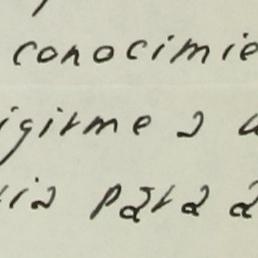 conocimie
igirme a u
ria para a